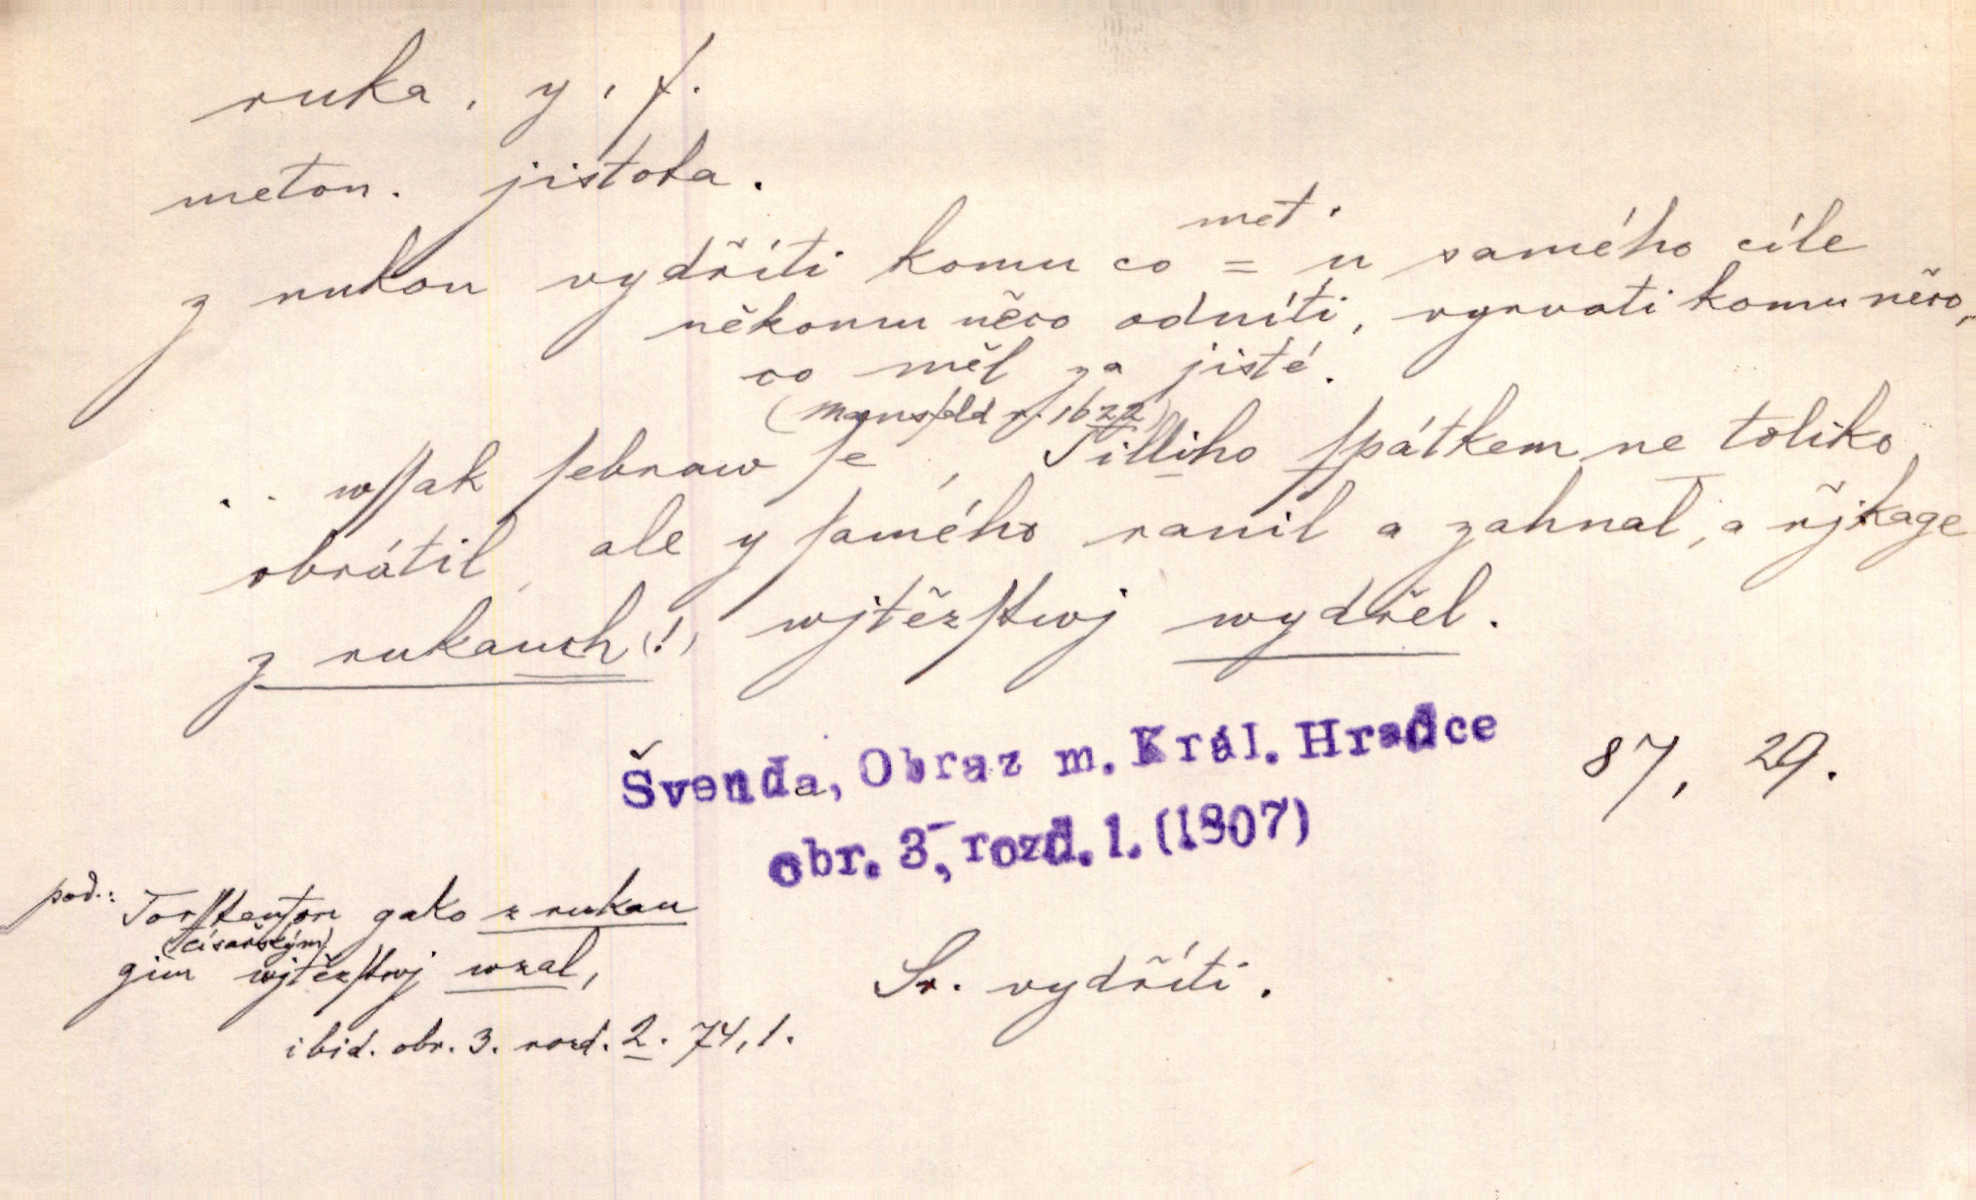 ruka, y, f.
meton. jistota.
z rukou vydříti komu co met. = u samého cíle
někomu něco odníti, vyrvati komu něco,
co měl za jisté.
(Mansfeld r. 1622)
.. wſſak ſebraw ſe, Tilliho ſpátkem ne toliko
obrátil, ale y ſamého ranil a zahnal, a řjkage
z rukauch(!) wjtězſtwj wydřel.
Švenda, Obraz m. Král. Hradce 87, 29.
obr. 3., rozd. 1. (1807)
pod.: Torſtenſon gako z rukau
(císařským)
gim wjtězſtwj wzal,
Sr. vydříti.
ibid. obr. 3. rozd. 2. 74, 1.